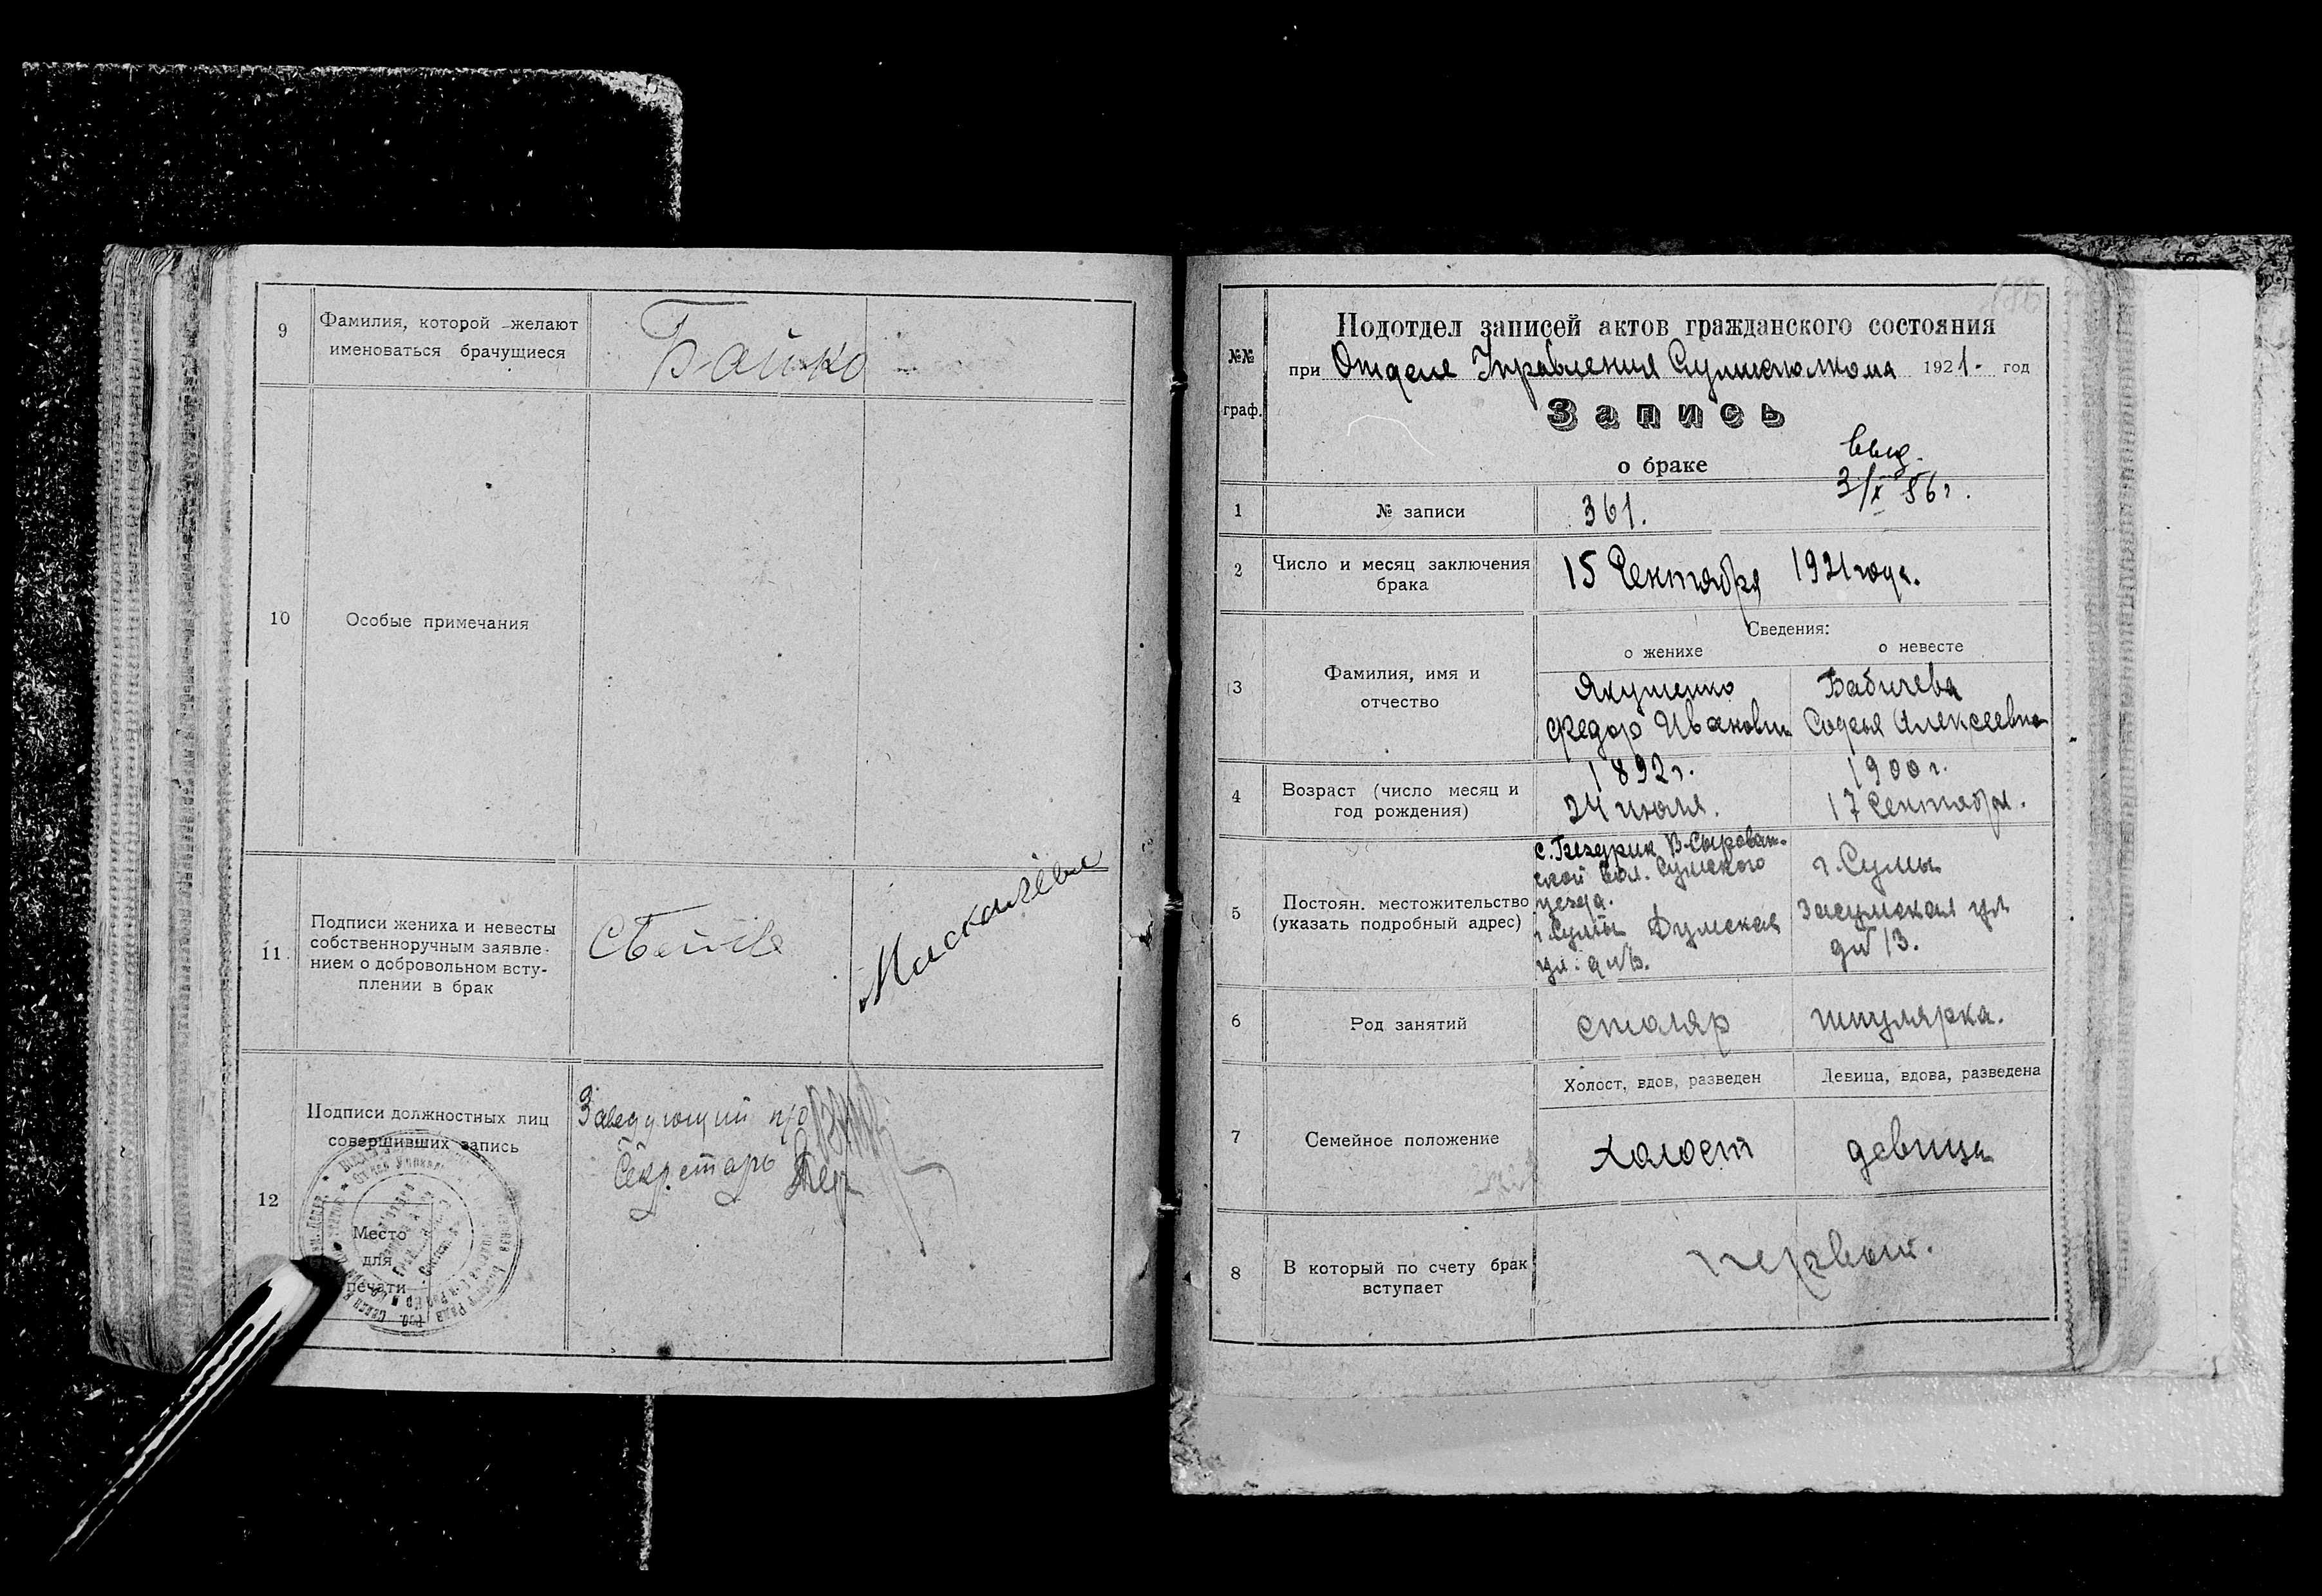 9
Фамилия, которой желают
именоваться брачущиеся
Бойко
10
Особые примечания
11.
Подписи жениха и невесты
собственноручным заявле-
нием о добровольном всту-
плении в брак
12
Подписи должностных лиц
совершивших запись
Заведующий п/о
Секретарь
Место
для
печати
№№
граф.
Подотдел записей актов гражданского состояния
при Отделе Управления Сумисполкома 1921 год
Запись
о браке
3/X 56г.
1
№ записи
361.
2
Число и месяц заключения
брака
15 Сентября 1921 года.
Сведения:
о женихе
о невесте
3
Фамилия, имя и
отчество
Якушенко
Федор Иванович
Бабичева
Софья Алексеевна
4
Возраст (число месяц и
год рождения)
1892г.
24 июля.
1900г.
17 Сентября.
5
Постоян. местожительство
(указать подробный адрес)
с. Бездрик В-Сыроват-
ской вол. Сумского
уезда.
г. Сумы Думская
ул.
г. Сумы
Засумская ул
д№ 13.
6
Род занятий
столяр
шпулярка.
7
Семейное положение
Холост, вдов, разведен
Девица, вдова, разведена
холост
девица
8
В который по счету брак
вступает
первый.